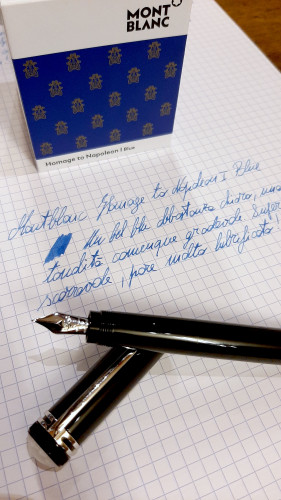 MONT
BLANC
Homage to Napoleon I Blue
Montblanc Homage to Napoleon I Blue
Un bel blu abbastanza chiaro, una
tondità comunque gradevole super
scorrevole, pare molto lubrificata,